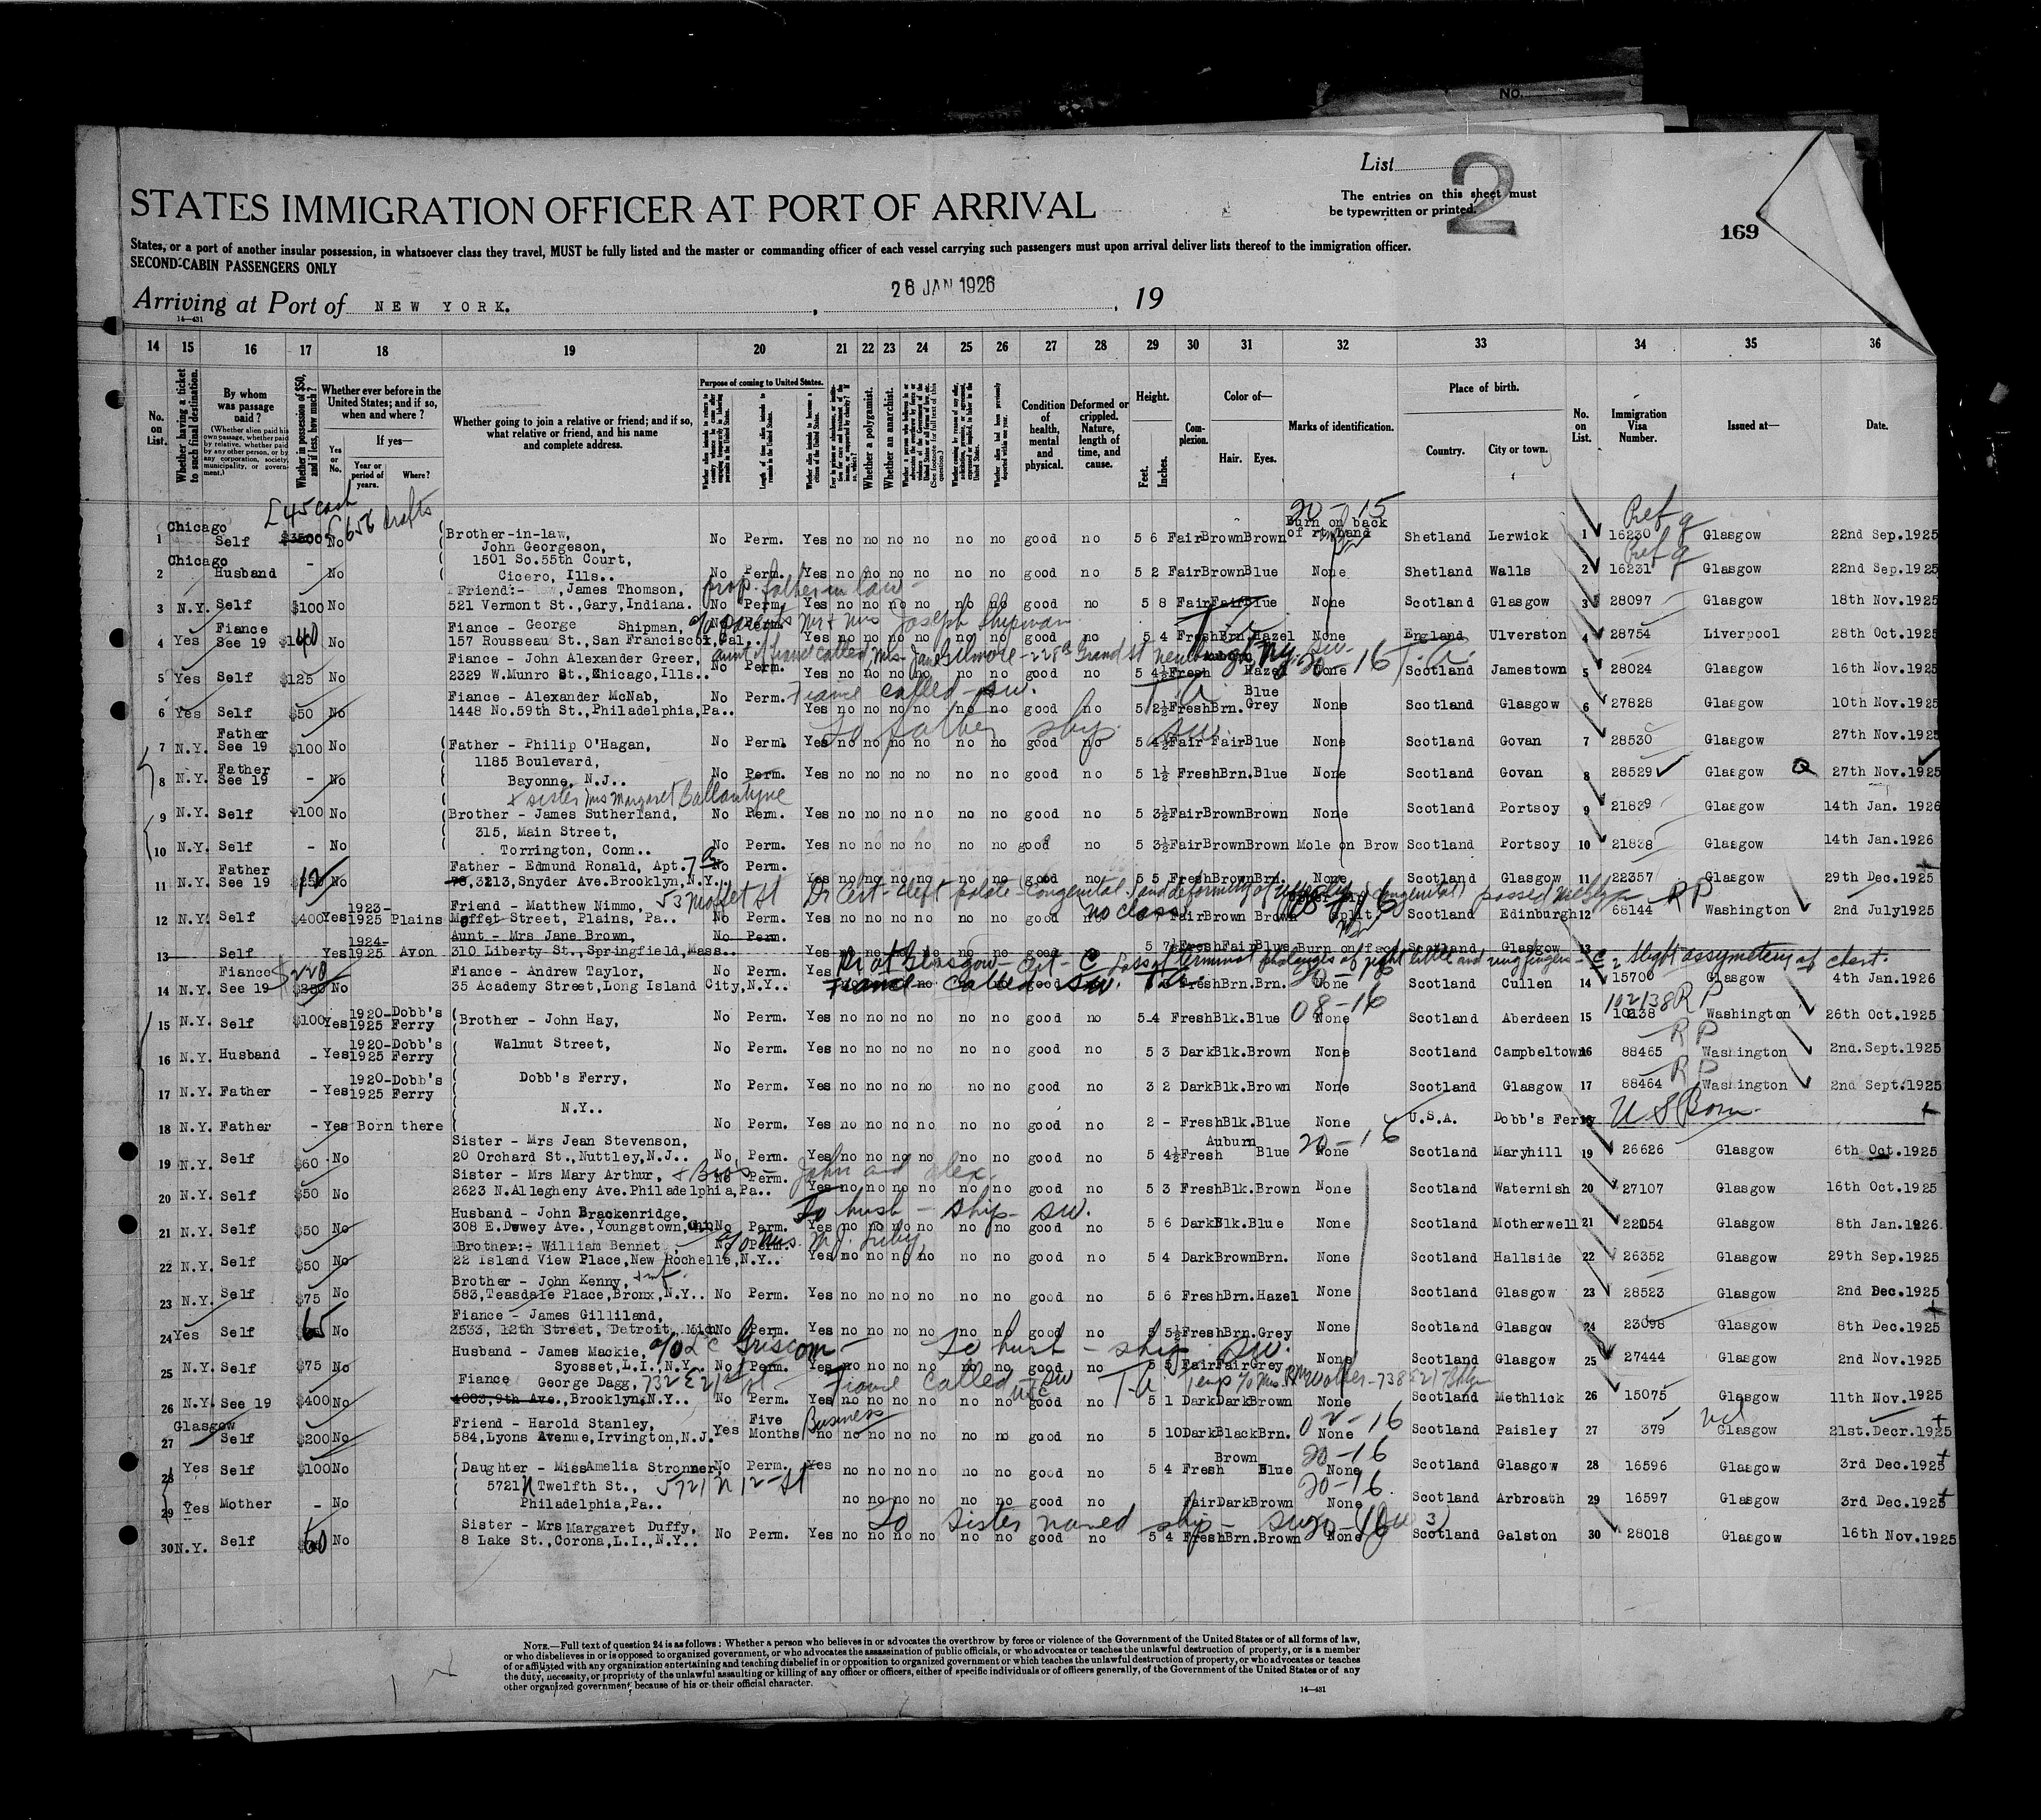 NO.
List
2
The entries on this sheet must
be typewritten or printed.
STATES IMMIGRATION OFFICER AT PORT OF ARRIVAL
169
States, or a port of another insular possession, in whatsoever class they travel, MUST be fully listed and the master or commanding officer of each vessel carrying such passengers must upon arrival deliver lists thereof to the immigration officer.
SECOND-CABIN PASSENGERS ONLY
Arriving at Port of NEW YORK. , 26 JAN 1926 , 19
14—431
14 15 16 17 18 19 20 21 22 23 24 25 26 27 28 29 30 31 32 33 34 35 36
No. on List.
Whether having a ticket to such final destination.
By whom was passage paid?
(Whether alien paid his own passage, whether paid by relative, whether paid by any other person, or by any corporation, society, municipality, or government.)
Whether in possession of $50, and if less, how much?
Whether ever before in the United States; and if so, when and where?
Yes or No.
If yes—
Year or period of years.
Where?
Whether going to join a relative or friend; and if so, what relative or friend, and his name and complete address.
Purpose of coming to United States.
Whether a polygamist.
Whether an anarchist.
Condition of health, mental and physical.
Deformed or crippled. Nature, length of time, and cause.
Height.
Feet. Inches.
Complexion.
Color of—
Hair. Eyes.
Marks of identification.
Place of birth.
Country. City or town.
No. on List.
Immigration Visa Number.
Issued at—
Date.
£45 cash £656 drafts
20-15
1 Chicago Self $3500 No Brother-in-law, John Georgeson, No Perm. Yes no no no no no no good no 5 6 Fair Brown Brown Burn on back of rt. hand Shetland Lerwick 1 16230 Glasgow 22nd Sep.1925
1501 So.55th Court,
2 Chicago Husband - No Cicero, Ills.. No Perm. Yes no no no no no no good no 5 2 Fair Brown Blue None Shetland Walls 2 16231 Glasgow 22nd Sep.1925
prop. father in law
3 N.Y. Self $100 No Friend:- James Thomson, 521 Vermont St.,Gary,Indiana. No Perm. Yes no no no no no no good no 5 8 Fair Fair Blue None Scotland Glasgow 3 28097 Glasgow 18th Nov.1925
c/o parents Mr & Mrs Joseph Shipman
4 Yes Fiance See 19 No Fiance - George Shipman, 157 Rousseau St.,San Francisco,Cal.. Yes no no no no no no good no 5 4 Fresh Brn. Hazel None England Ulverston 4 28754 Liverpool 28th Oct.1925
aunt of fiance called, Mrs. Jane Gilmore - 228 Grand St Newburgh, NY. 20-16 T.A.
5 Yes Self $125 No Fiance - John Alexander Greer, 2329 W.Munro St.,Chicago,Ills.. No Perm. Yes no no no no no no good no 5 4½ Fresh Hazel None Scotland Jamestown 5 28024 Glasgow 16th Nov.1925
Fiance called - SW. T.A
6 Yes Self $50 No Fiance - Alexander McNab, 1448 No.59th St.,Philadelphia,Pa.. No Perm. Yes no no no no no no good no 5 2½ Fresh Brn. Blue Grey None Scotland Glasgow 6 27828 Glasgow 10th Nov.1925
To father ship SW
7 N.Y. Father See 19 $100 No Father - Philip O'Hagan, No Perm. Yes no no no no no no good no 5 4½ Fair Fair Blue None Scotland Govan 7 28530 Glasgow 27th Nov.1925
1185 Boulevard,
8 N.Y. Father See 19 - No Bayonne, N.J.. No Perm. Yes no no no no no no good no 5 1½ Fresh Brn. Blue None Scotland Govan 8 28529 Glasgow 27th Nov.1925
+ sister Mrs Margaret Ballantyne
9 N.Y. Self $100 No Brother - James Sutherland, No Perm. Yes no no no no no no good no 5 3½ Fair Brown Brown None Scotland Portsoy 9 21839 Glasgow 14th Jan. 1926
315, Main Street,
10 N.Y. Self - No Torrington, Conn.. No Perm. Yes no no no no no no good no 5 3½ Fair Brown Brown Mole on Brow Scotland Portsoy 10 21838 Glasgow 14th Jan.1926
11 N.Y. Father See 19 No Father - Edmund Ronald, Apt. 3213,Snyder Ave.Brooklyn,N.Y.. No Perm. Yes no no no no no no good no 5 5 Fresh Brown Brn. None Scotland Glasgow 11 22357 Glasgow 29th Dec.1925
53 Moffet St Dr Cert - cleft palate (congenital) and deformity of upper lip (congenital) passed
12 N.Y. Self $400 Yes 1923-1925 Plains Friend - Matthew Nimmo, Moffet Street, Plains, Pa.. No Perm. Yes no no no no no no good no class Fair Brown Brown Scotland Edinburgh 12 68144 RP Washington 2nd July1925
13 Self Yes 1924-1925 Avon Aunt - Mrs Jane Brown, 310 Liberty St.,Springfield,Mass.. No Perm. Yes no no no no no no good 5 7½ Fresh Fair Blue Burn on face Scotland Glasgow 13
Dr at Glasgow - Cert - C Loss of terminal phalanges of right little and ring fingers - slight assymetery of chest.
14 N.Y. Fiance See 19 $220 No Fiance - Andrew Taylor, 35 Academy Street,Long Island City,N.Y.. No Perm. Yes Fiance called SW. T.A. Fresh Brn. Brn. None Scotland Cullen 14 15700 Glasgow 4th Jan.1926
08-16 102138 RP
15 N.Y. Self $100 Yes 1920-1925 Dobb's Ferry Brother - John Hay, No Perm. Yes no no no no no no good no 5-4 Fresh Blk. Blue None Scotland Aberdeen 15 10138 Washington 26th Oct.1925
16 N.Y. Husband - Yes 1920-1925 Dobb's Ferry Walnut Street, No Perm. Yes no no no no no no good no 5 3 Dark Blk. Brown None Scotland Campbeltown 16 88465 RP Washington 2nd.Sept.1925
17 N.Y. Father - Yes 1920-1925 Dobb's Ferry Dobb's Ferry, No Perm. Yes no no no no no no good no 3 2 Dark Blk. Brown None Scotland Glasgow 17 88464 RP Washington 2nd Sept.1925
18 N.Y. Father - Yes Born there N.Y.. No Perm. Yes no no no no no no good no 2 - Fresh Blk. Blue None U.S.A. Dobb's Ferry U S Born
20-16
19 N.Y. Self $60 No Sister - Mrs Jean Stevenson, 20 Orchard St.,Nuttley,N.J.. No Perm. Yes no no no no no no good no 5 4½ Fresh Auburn Blue None Scotland Maryhill 19 26626 Glasgow 6th Oct.1925
+ Bros - John and Alex.
20 N.Y. Self $50 No Sister - Mrs Mary Arthur, 2623 N.Allegheny Ave.Philadelphia,Pa.. No Perm. Yes no no no no no no good no 5 3 Fresh Blk. Brown None Scotland Waternish 20 27107 Glasgow 16th Oct.1925
To husb - ship - SW.
21 N.Y. Self $50 No Husband - John Brackenridge, 308 E.Dewey Ave.,Youngstown, No Perm. Yes no no no no no no good no 5 6 Dark Blk. Blue None Scotland Motherwell 21 22054 Glasgow 8th Jan.1926.
22 N.Y. Self $50 No Brother:- William Bennet, 22 Island View Place,New Rochelle,N.Y.. c/o Mrs. No Perm. Yes no no no no no no good no 5 4 Dark Brown Brn. None Scotland Hallside 22 26352 Glasgow 29th Sep.1925
23 N.Y. Self $75 No Brother - John Kenny, 583,Teasdale Place,Bronx,N.Y.. No Perm. Yes no no no no no no good no 5 6 Fresh Brn. Hazel None Scotland Glasgow 23 28523 Glasgow 2nd Dec.1925
24 Yes Self 65 No Fiance - James Gilliland, 2533, 12th Street, Detroit, Mich No Perm. Yes no no no no no no good no 5 5½ Fresh Brn. Grey None Scotland Glasgow 24 23098 Glasgow 8th Dec.1925
c/o L C Griscom - To husb - ship SW.
25 N.Y. Self $75 No Husband - James Mackie, Syosset,L.I.,N.Y.. No Perm. Yes no no no no no no good no 5 5 Fair Fair Grey None Scotland Glasgow 25 27444 Glasgow 2nd Nov.1925
732 E 21st St - Fiance called SW T.A.
26 N.Y. See 19 $400 No Fiance George Dagg, 4003,9th Ave.,Brooklyn,N.Y.. No Perm. Yes no no no no no no good no 5 1 Dark Dark Brown None Scotland Methlick 26 15075 Glasgow 11th Nov.1925
Business 02-16
27 Glasgow Self $200 No Friend - Harold Stanley, 584,Lyons Avenue,Irvington,N.J. Yes Five Months no no no no no no good no 5 10 Dark Black Brn. None Scotland Paisley 27 379 Glasgow 21st.Decr.1925
20-16
28 Yes Self $100 No Daughter - Miss Amelia Stronner, No Perm. Yes no no no no no no good no 5 4 Fresh Brown Blue None Scotland Glasgow 28 16596 Glasgow 3rd Dec.1925
5721 N Twelfth St., 5721 N 12 St 20-16
29 Yes Mother - No Philadelphia,Pa.. no no no no no no good no Fair Dark Brown None Scotland Arbroath 29 16597 Glasgow 3rd Dec.1925
To sister named ship - SW
30 N.Y. Self 60 No Sister - Mrs Margaret Duffy, 8 Lake St.,Corona,L.I.,N.Y.. No Perm. Yes no no no no no no good no 5 4 Fresh Brn. Brown None Scotland Galston 30 28018 Glasgow 16th Nov.1925
NOTE.—Full text of question 24 is as follows: Whether a person who believes in or advocates the overthrow by force or violence of the Government of the United States or of all forms of law,
or who disbelieves in or is opposed to organized government, or who advocates the assassination of public officials, or who advocates or teaches the unlawful destruction of property, or is a member
of or affiliated with any organization entertaining and teaching disbelief in or opposition to organized government or which teaches the unlawful destruction of property, or who advocates or teaches
the duty, necessity, or propriety of the unlawful assaulting or killing of any officer or officers, either of specific individuals or of officers generally, of the Government of the United States or of any
other organized government because of his or their official character.
14—431